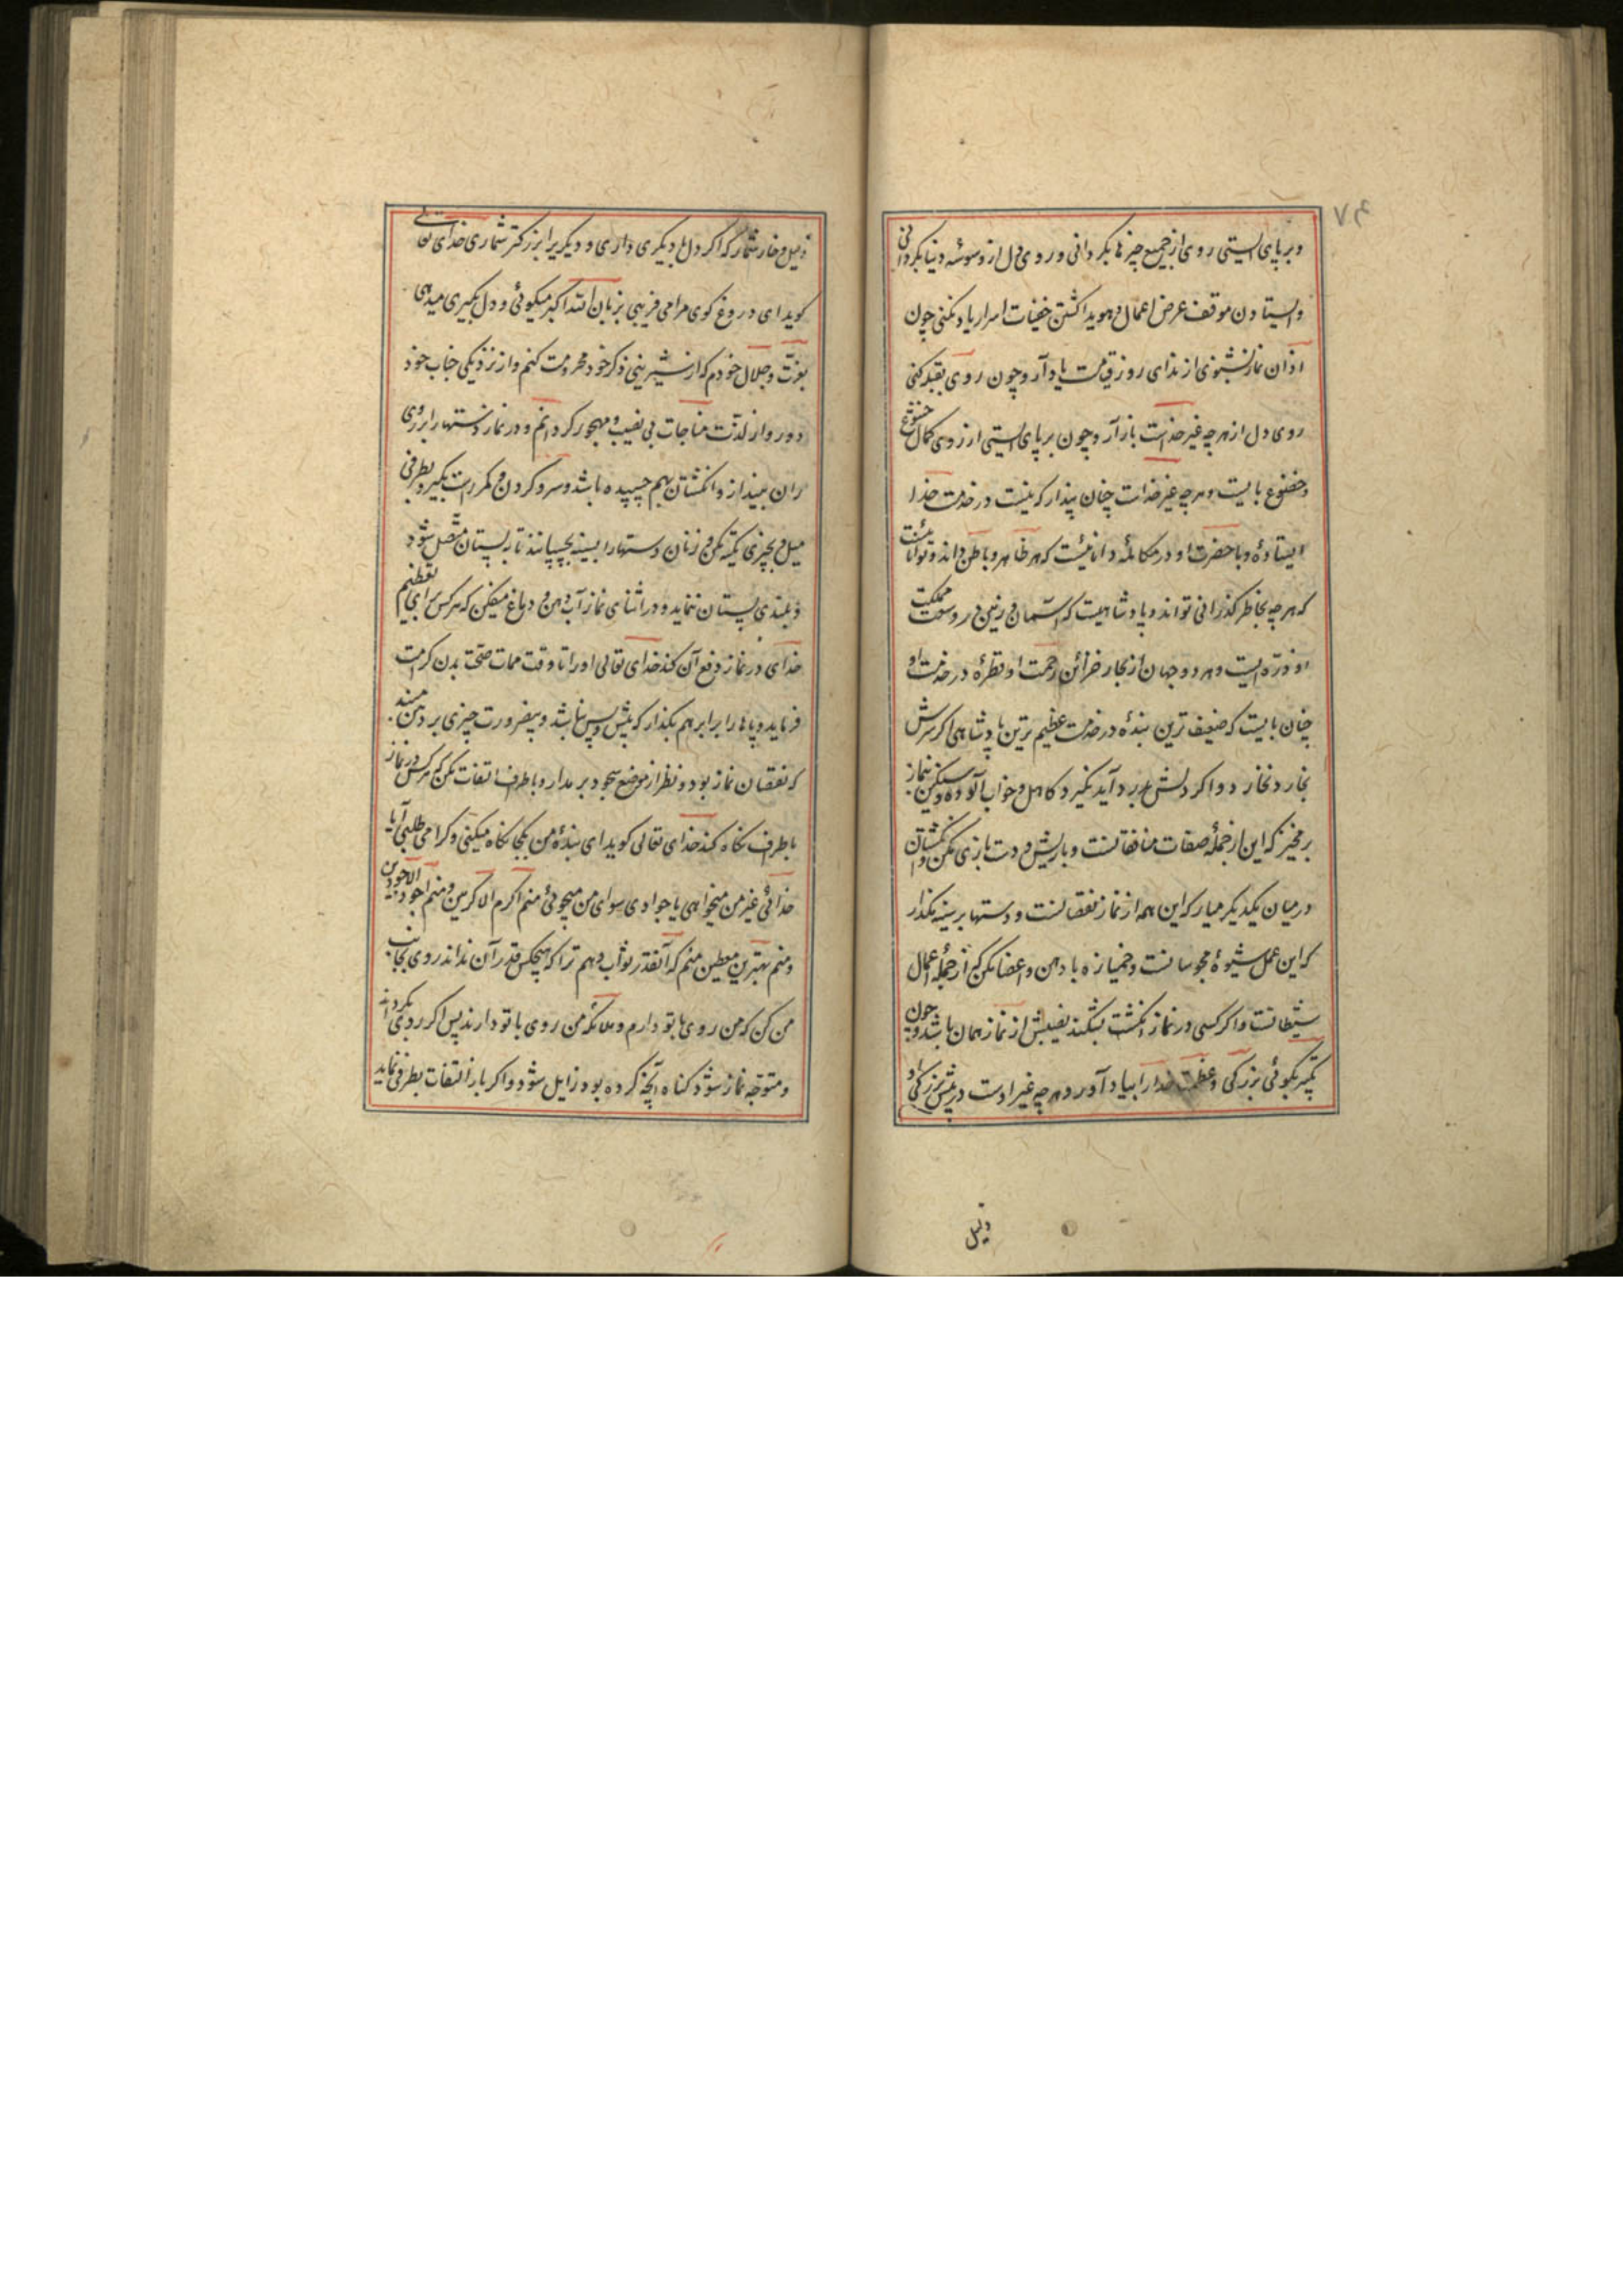 و بر پای ایستی روی از جمیع چیزها بگردانی و روی دل از وسوسه دنیا بگردانی
و ایستادن موقف عرض اعمال و هویدا گشتن خفیات اسرار یاد کنی چون
اذان نماز بشنوی از ندای روز قیامت یاد آر و چون روی بقبله کنی
روی دل از هر چه غیر خداست باز آر و چون بر پای ایستی از روی کمال خشوع
و خضوع بایست و هر چه غیر خداست چنان پندار که نیست در خدمت خدا
ایستادهٔ و با حضرت او در مکالمهٔ دانائیست که هر ظاهر و باطن داند و توانائیست
که هر چه بخاطر گذرانی تواند و پادشاهیست که آسمان و زمین در وسعت مملکت
او ذره ایست و هر دو جهان از بحار خزائن رحمت او قطرهٔ در خدمت او
چنان بایست که ضعیف ترین بندهٔ در خدمت عظیم ترین پادشاهی اگر سرش
بخارد نخارد و اگر دلش بدرد آید نگیرد کاهل و خواب آلوده و سنگین بنماز
برمخیز که این از جملهٔ صفات منافقانست و با ریش و دست بازی مکن و انگشتان
در میان یکدیگر میار که این همه از نماز نقصانست و دستها بر سینه مگذار
که این عمل شیوهٔ مجوسانست و خمیازه با دهن و اعضا مکن که از جملهٔ اعمال
شیطانست و اگر کسی در نماز انگشت بشکند نصیبش از نماز همان باشد و چون
تکبیر بگوئی بزرگی و عظمت خدا را بیاد آور و هر چه غیر اوست در پیش بزرگی او
ذلیل
ذلیل و خار شمار که اگر دل با دیگری داری و دیگریرا بزرگتر شماری خدای تعالی
گوید ای دروغ گوی مرا می فریبی بزبان الله اکبر میگوئی و دل بگیری میدهی
بعزت و جلال خودم که از شیرینی ذکر خود محرومت کنم و از نزدیکی جناب خود
دور و از لذت مناجات بی نصیب و مهجور گردانم و در نماز دستها را بر روی
ران بینداز و انگشتان بهم چسپیده باشد و سر و گردن و کمر راست بگیر و بطرفی
میل و بچیزی تکیه مکن و زنان دستها را بسینه بچسپانند تا به پستان متصل شود
و بلندی پستان ننماید و در اثنای نماز آب دهن و دماغ میفکن که هر کس برای تعظیم
خدای در نماز دفع آن کند خدای تعالی او را تا وقت ممات صحت بدن کرامت
فرماید و پاها را برابر هم بگذار که پیش و پس نباشد و بیضرورت چیزی بر دهن مبند
که نقصان نماز بود و نظر از موضع سجود برمدار و باطراف التفات مکن که هر کس در نماز
باطراف نگاه کند خدای تعالی گوید ای بندهٔ من بکجا نگاه میکنی و کرا می طلبی آیا
خدائی غیر من میخواهی یا جوادی سوای من میجوئی منم اکرم الاکرمین و منم اجود الاجودین
و منم بهترین معطین منم که آنقدر ثواب دهم ترا که هیچکس قدر آن نداند روی بجانب
من کن که من روی با تو دارم و ملائکه من روی با تو دارند پس اگر روی بگرداند
و متوجه نماز شود گناه آنچه کرده بود زایل شود و اگر باز التفات بطرفی نماید